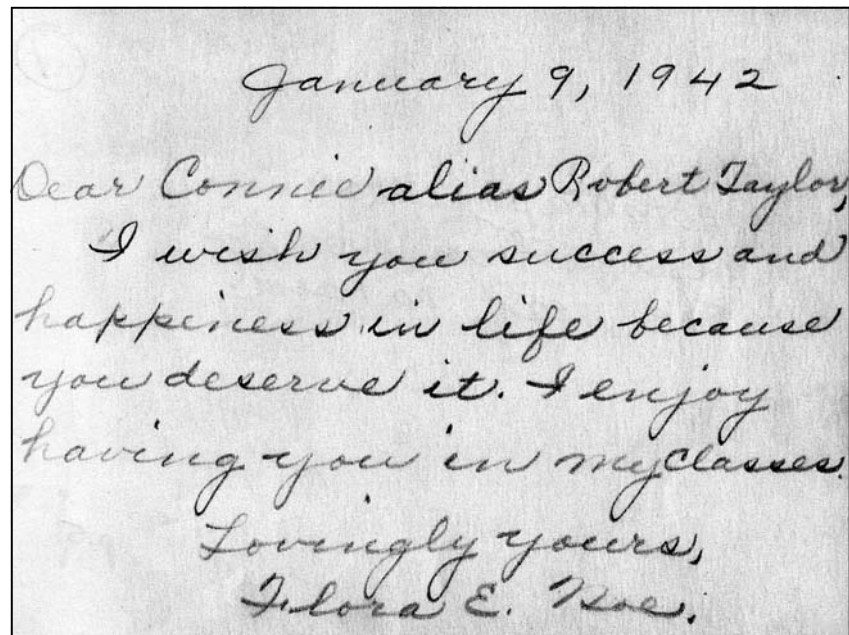 January 9, 1942
Dear Connie alias Robert Taylor,
I wish you success and
happiness in life because
you deserve it. I enjoy
having you in my classes.
Lovingly yours,
Flora E. Noe.